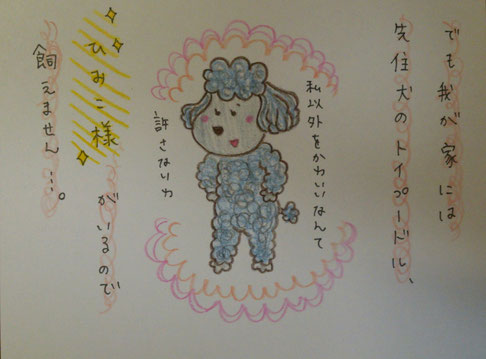 でも我が家には
先住犬のトイプードル、
私以外をかわいいなんて
許さないわ
ひみこ様
がいるので
飼えません…。